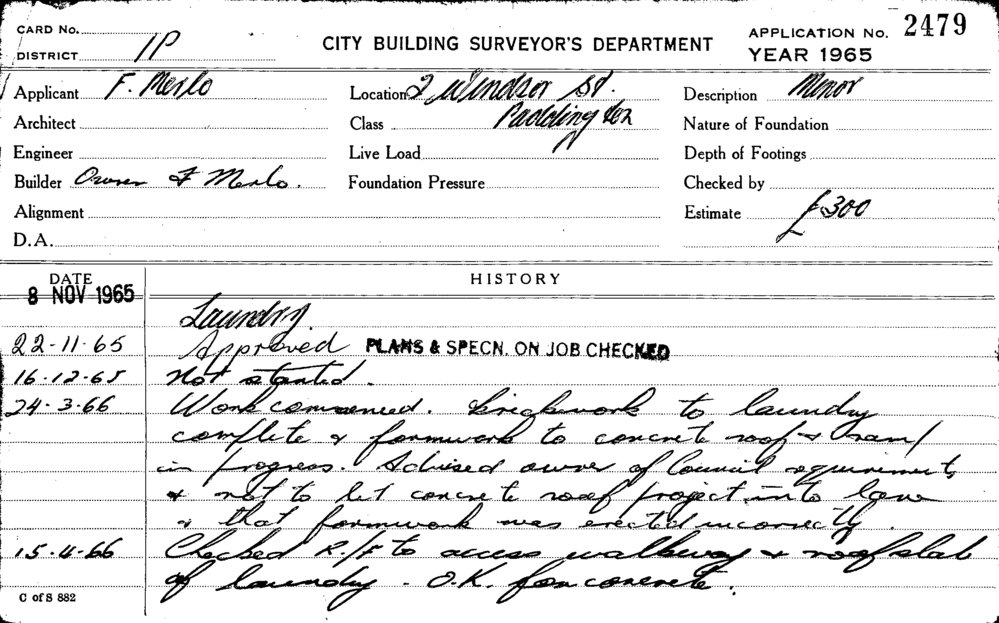 CARD No.
DISTRICT 1P
CITY BUILDING SURVEYOR'S DEPARTMENT
APPLICATION No. 2479
YEAR 1965
Applicant F. Merlo
Location 2 Windsor St.
Description Minor
Architect
Class Paddington
Nature of Foundation
Engineer
Live Load
Depth of Footings
Builder Owner F Merlo.
Foundation Pressure
Checked by
Alignment
Estimate £300
D.A.
DATE
HISTORY
8 NOV 1965
Laundry.
22-11-65 Approved PLANS & SPECN. ON JOB CHECKED
16-12-65 Not started.
24-3-66 Work commenced. Brickwork to laundry
complete & formwork to concrete roof & ramp
in progress. Advised owner of Council requirements
& not to let concrete roof project into lane
& that formwork was erected incorrectly.
15-4-66 Checked R./F to access walkway & roof slab
of laundry - O.K. for concrete.
C of S 882